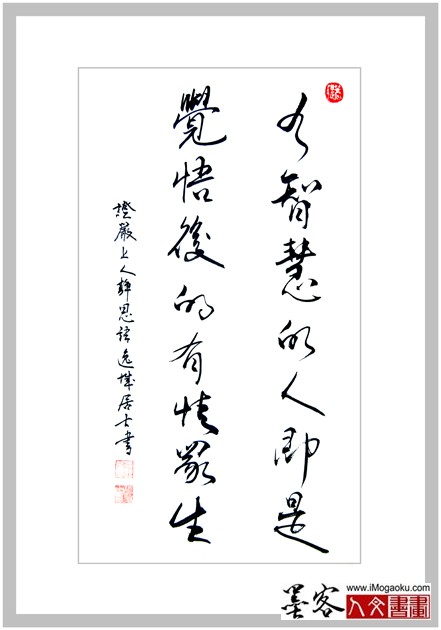 有智慧的人即是
覺悟後的有情眾生
證嚴上人靜思語逸城居士書
墨客
www.iMogaoku.com
人文書畫